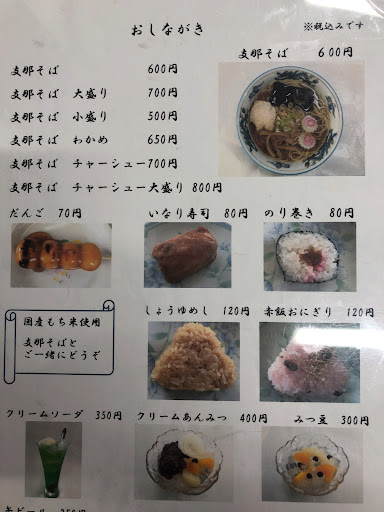 おしながき
※税込みです
支那そば 600円
支那そば 600円
支那そば 大盛り 700円
支那そば 小盛り 500円
支那そば わかめ 650円
支那そば チャーシュー700円
支那そば チャーシュー大盛り 800円
だんご 70円
いなり寿司 80円
のり巻き 80円
国産もち米使用
支那そばと
ご一緒にどうぞ
しょうゆめし 120円
赤飯おにぎり 120円
クリームソーダ 350円
クリームあんみつ 400円
みつ豆 300円